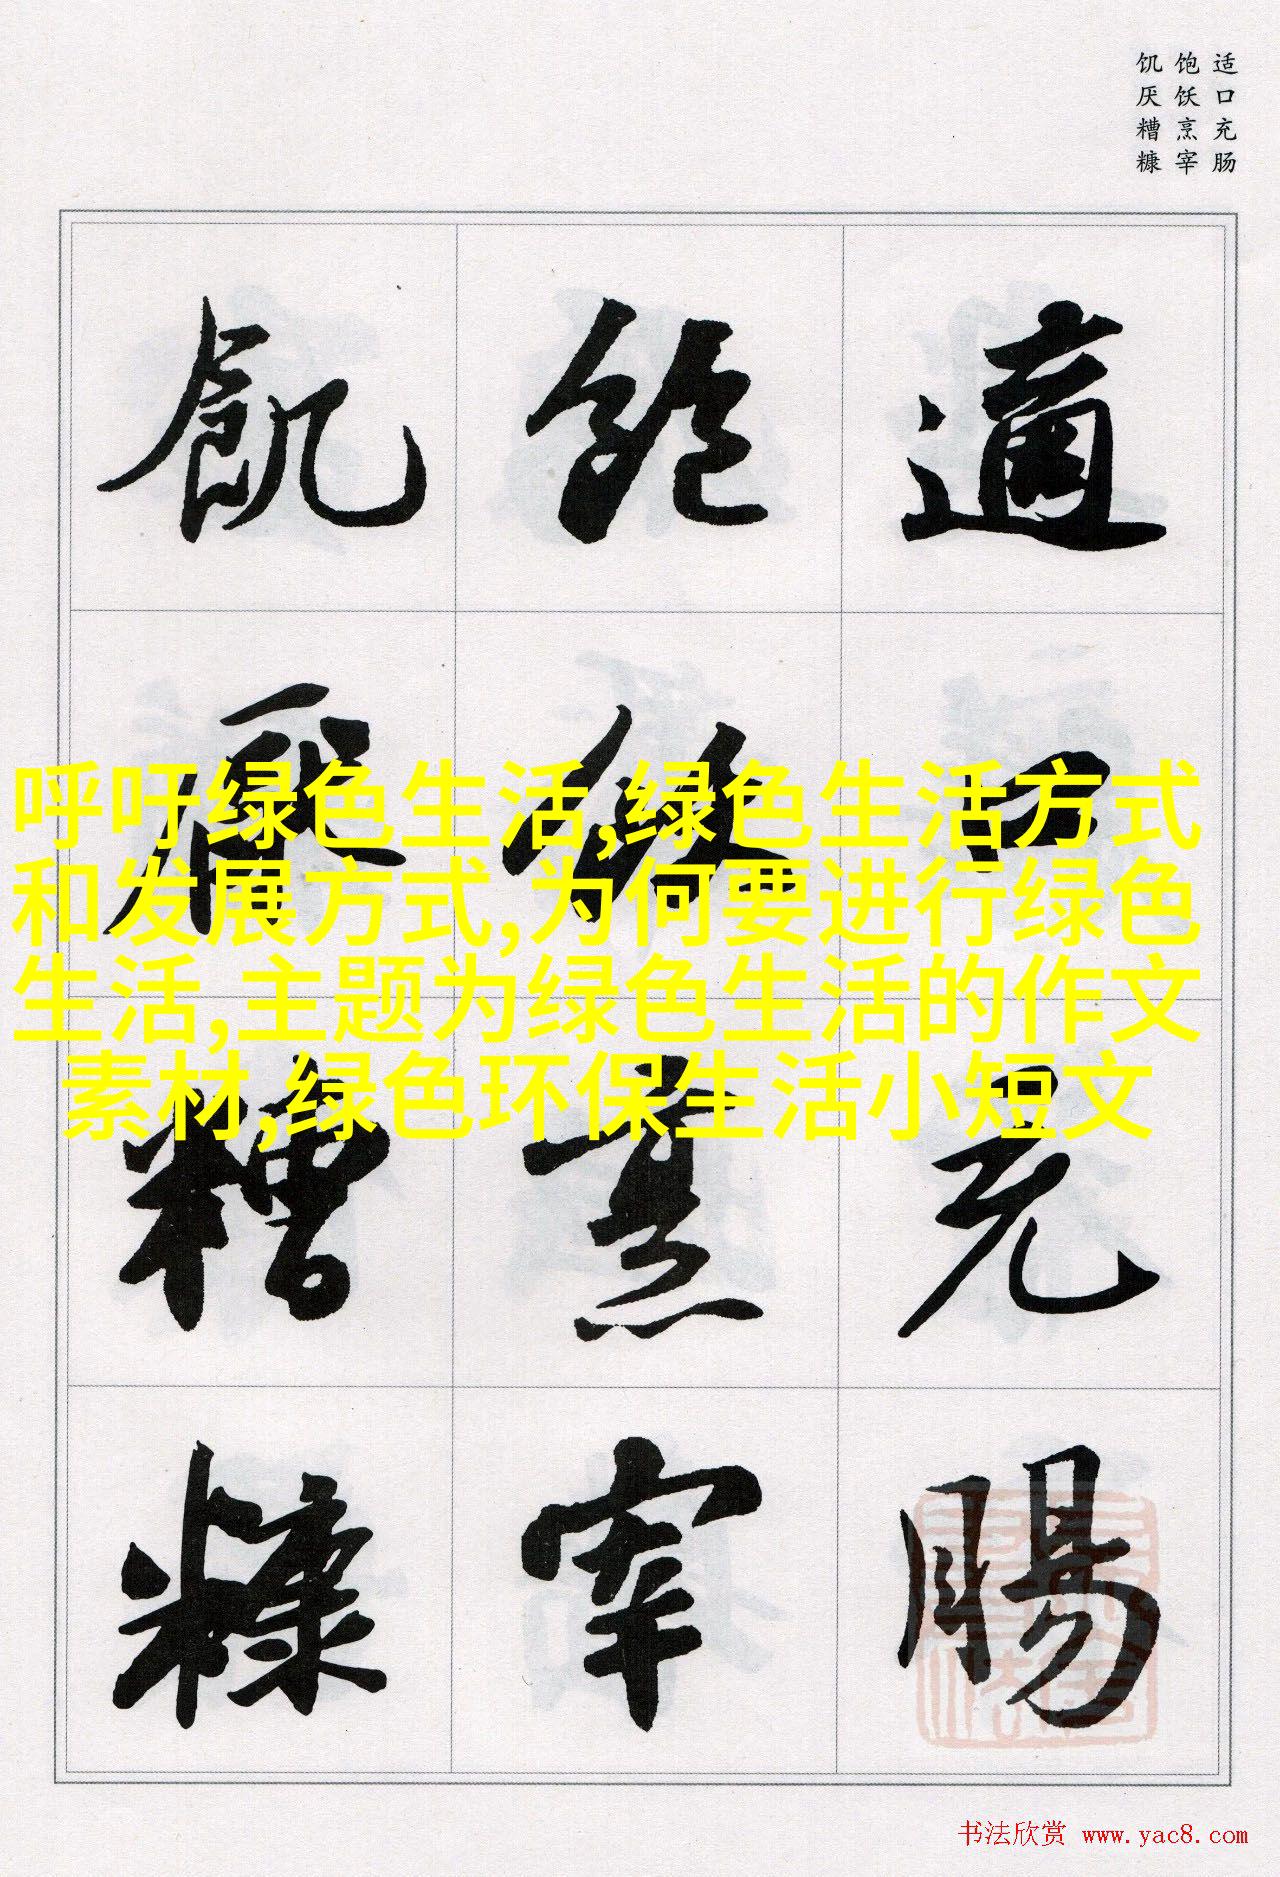 适口充肠
饱饫烹宰
饥厌糟糠
適口充腸
飽飫烹宰
飢厭糟糠
呼吁绿色生活,绿色生活方式
和发展方式,为何要进行绿色
生活,主题为绿色生活的作文
素材,绿色环保生活小短文
书法欣赏 www.yac8.com